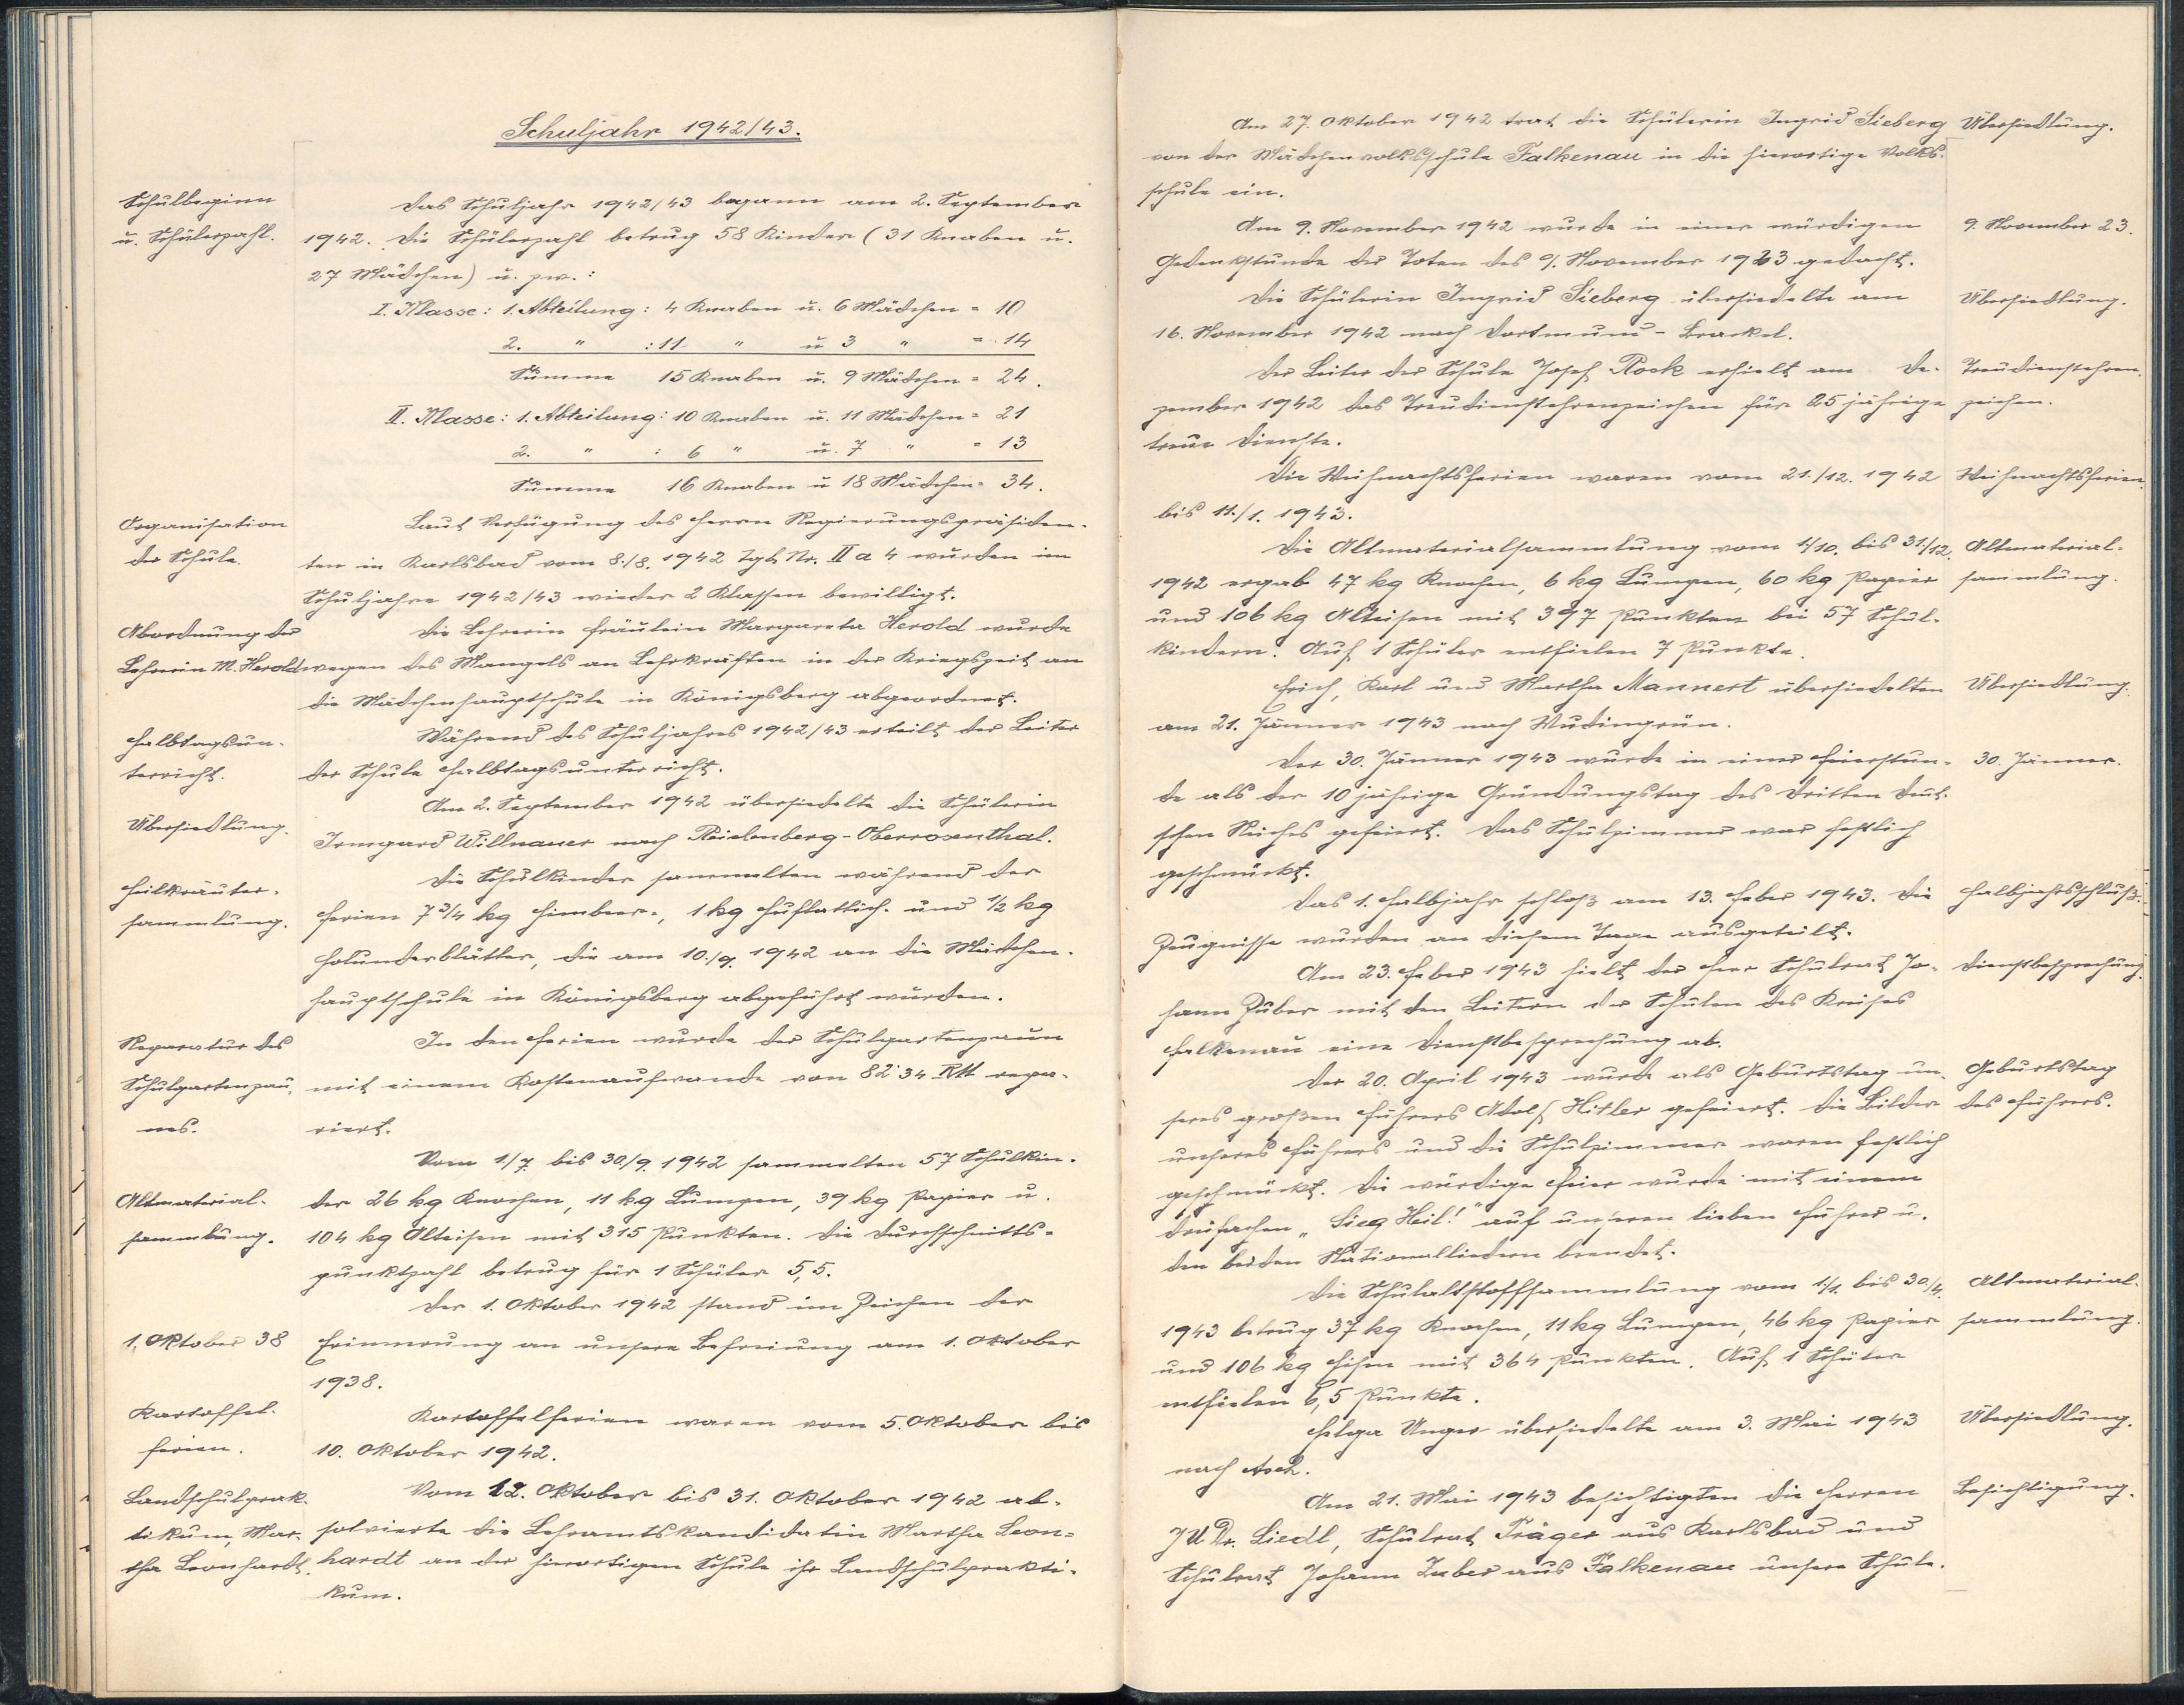 Schuljahr 1942/43.
Schulbeginn
u. Schülerzahl.
Das Schuljahr 1942/43 begann am 2. September
1942. Die Schülerzahl betrug 58 Kinder (31 Knaben u.
27 Mädchen) u. zw.:
I. Klasse: 1. Abteilung: 4 Knaben u. 6 Mädchen = 10
2. " : 11 " u 3 " = 14
Summe 15 Knaben u. 9 Mädchen = 24.
II. Klasse: 1. Abteilung: 10 Knaben u. 11 Mädchen = 21
2. " : 6 " u. 7 " = 13
Summe 16 Knaben u 18 Mädchen = 34.
Organisation
der Schule.
Laut Verfügung des Herrn Regierungspräsiden-
ten in Karlsbad vom 8./8. 1942 Tgb Nr. II a 4 wurden im
Schuljahre 1942/43 wieder 2 Klassen bewilligt.
Abordnung der
Lehrerin M. Herold
Die Lehrerin Fräulein Margareta Herold wurde
wegen des Mangels an Lehrkräften in der Kriegszeit an
die Mädchenhauptschule in Königsberg abgeordnet.
Halbtagsun-
terricht.
Während des Schuljahres 1942/43 erteilt der Leiter
der Schule Halbtagsunterricht.
Übersiedlung.
Am 2. September 1942 übersiedelte die Schülerin
Irmgard Willnauer nach Reichenberg-Oberrosenthal.
Heilkräuter-
sammlung.
Die Schulkinder sammelten während der
Ferien 7 3/4 kg Himbeer-, 1 kg Huflattich- und 1/2 kg
Holunderblätter, die am 10./9. 1942 an die Mädchen-
hauptschule in Königsberg abgeführt wurden.
Reparatur des
Schulgartenzau-
nes.
In den Ferien wurde der Schulgartenzaun
mit einem Kostenaufwande von 82·34 RM repa-
riert.
Vom 1/7. bis 30./9. 1942 sammelten 57 Schulkin-
Altmaterial-
sammlung.
der 26 kg Knochen, 11 kg Lumpen, 39 kg Papier u.
104 kg Alteisen mit 315 Punkten. Die Durchschnitts-
punktzahl betrug für 1 Schüler 5,5.
Der 1. Oktober 1942 stand im Zeichen der
1. Oktober 38
Erinnerung an unsere Befreiung am 1. Oktober
1938.
Kartoffel-
ferien.
Kartoffelferien waren vom 5. Oktober bis
10. Oktober 1942.
Landschulprak-
tikum, Mar-
tha Leonhardt.
Vom 12. Oktober bis 31. Oktober 1942 ab-
solvierte die Lehramtskandidatin Martha Leon-
hardt an der hierortigen Schule ihr Landschulprakti-
kum.
Am 27. Oktober 1942 trat die Schülerin Ingrid Sieberg
Übersiedlung.
von der Mädchenvolksschule Falkenau in die hierortige Volks-
schule ein.
Am 9. November 1942 wurde in einer würdigen
9. November 23.
Gedenkstunde der Toten des 9. November 1923 gedacht.
Die Schülerin Ingrid Sieberg übersiedelte am
Übersiedlung.
16. November 1942 nach Dortmund-Brackel.
Der Leiter der Schule Josef Rock erhielt am De-
zember 1942 das Treudienstehrenzeichen für 25 jährige
treue Dienste.
Treudienstehren-
zeichen.
Die Weihnachtsferien waren vom 21./12. 1942
Weihnachtsferien.
bis 11./1. 1943.
Die Altmaterialsammlung vom 1/10. bis 31./12.
1942 ergab 47 kg Knochen, 6 kg Lumpen, 60 kg Papier
Altmaterial-
sammlung.
und 106 kg Alteisen mit 397 Punkten bei 57 Schul-
kindern. Auf 1 Schüler entfielen 7 Punkte.
Erich, Karl und Martha Mannert übersiedelten
Übersiedlung.
am 21. Jänner 1943 nach Wudingrün.
Der 30. Jänner 1943 wurde in einer Feierstun-
30. Jänner.
de als der 10 jährige Gründungstag des Dritten Deut-
schen Reiches gefeiert. Das Schulzimmer war festlich
geschmückt.
Das 1. Halbjahr schloß am 13. Feber 1943. Die
Halbjahrsschluß.
Zeugnisse wurden an diesem Tage ausgeteilt.
Am 23. Feber 1943 hielt der Herr Schulrat Jo-
Dienstbesprechung.
hann Zuber mit den Leitern der Schulen des Kreises
Falkenau eine Dienstbesprechung ab.
Der 20. April 1943 wurde als Geburtstag un-
seres großen Führers Adolf Hitler gefeiert. Die Bilder
Geburtstag
des Führers.
unseres Führers und die Schulzimmer waren festlich
geschmückt. Die würdige Feier wurde mit einem
dreifachen „Sieg Heil!" auf unseren lieben Führer u.
den beiden Nationalliedern beendet.
Die Schulaltstoffsammlung vom 1./1. bis 30./4.
1943 betrug 37 kg Knochen, 11 kg Lumpen, 46 kg Papier
Altmaterial-
sammlung.
und 106 kg Eisen mit 364 Punkten. Auf 1 Schüler
entfielen 6,5 Punkte.
Helga Unger übersiedelte am 3. Mai 1943
Übersiedlung.
nach Asch.
Am 21. Mai 1943 besichtigten die Herren
Besichtigung.
JU Dr. Liedl, Schulrat Träger aus Karlsbad und
Schulrat Johann Zuber aus Falkenau unsere Schule.